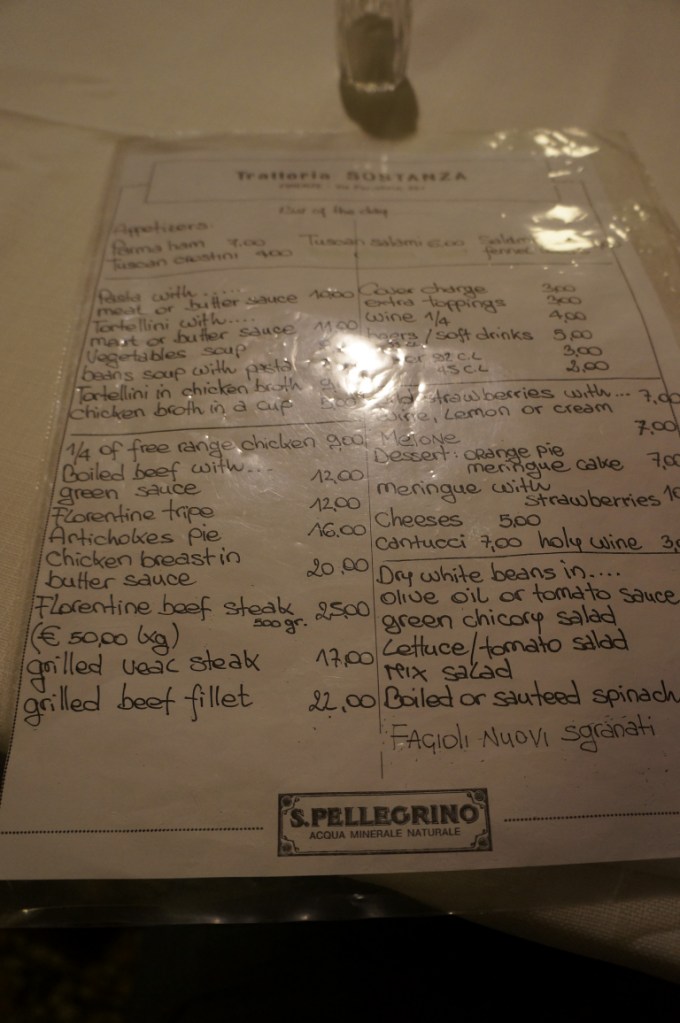 Trattoria SOSTANZA
Menu of the day
Appetizers:
Parma ham 7.00 Tuscan salami 6.00 Salami
Tuscan crostini 4.00 fennel
Pasta with......
meat or butter sauce 10,00
Tortellini with....
mart or butter sauce 11,00
Vegetables soup
beans soup with pasta
Tortellini in chicken broth
chicken broth in a cup
Cover charge 3,00
extra toppings 3,00
Wine 1/4 4,00
beers/soft drinks 5,00
92 C.L 3,00
45 CL 2,00
strawberries with... 7,00
wine, Lemon or cream
Melone 7,00
Dessert: orange pie
meringue cake 7,00
meringue with
strawberries 10
Cheeses 5,00
Cantucci 7,00 holy wine 3,
1/4 of free range chicken 9,00
Boiled beef with....
green sauce 12,00
Florentine tripe 12,00
Artichokes pie 16,00
Chicken breast in
butter sauce 20,00
Florentine beef steak 25,00
500 gr.
(€ 50,00 kg)
grilled veac steak 17,00
grilled beef fillet 22,00
Dry white beans in....
olive oil or tomato sauce
green chicory salad
Lettuce/tomato salad
Mix salad
Boiled or sauteed spinach
FAGIOLI NUOVI sgranati
S.PELLEGRINO
ACQUA MINERALE NATURALE